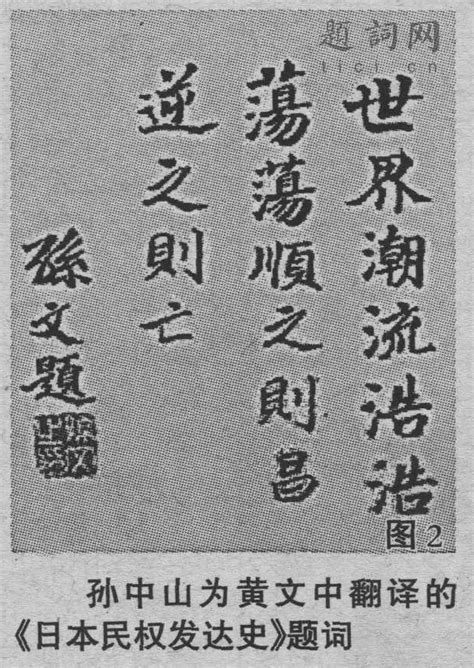 題詞网
tici.cn
世界潮流浩浩
蕩蕩順之則昌
逆之則亡
孫文題
图2
孙中山为黄文中翻译的
《日本民权发达史》题词